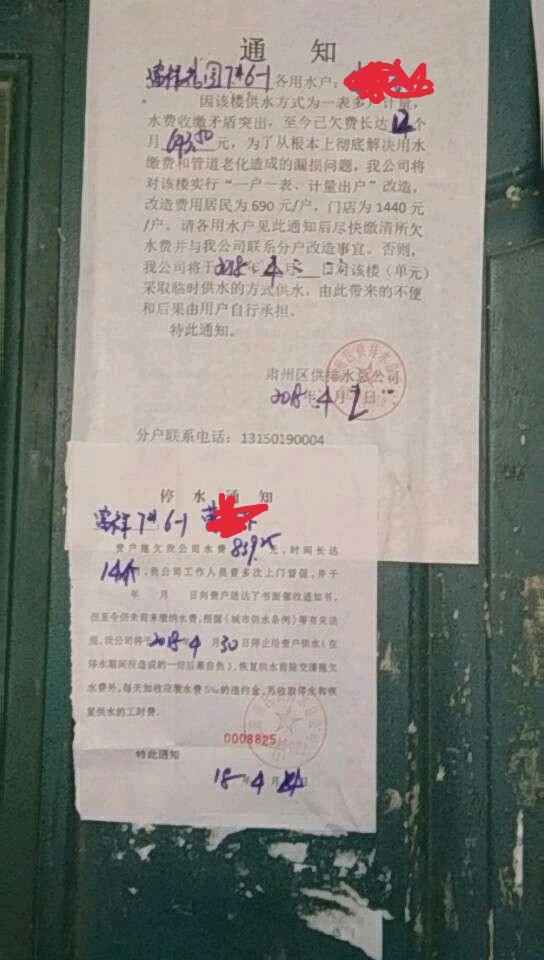 通 知
7#6-1 各用水户：
因该楼供水方式为一表多户计量，
水费收缴矛盾突出，至今已欠费长达12个
月693.50元，为了从根本上彻底解决用水
缴费和管道老化造成的漏损问题，我公司将
对该楼实行“一户一表、计量出户”改造，
改造费用居民为 690 元/户，门店为 1440 元
/户。请各用水户见此通知后尽快缴清所欠
水费并与我公司联系分户改造事宜。否则，
我公司将于2018年4月 日对该楼（单元）
采取临时供水的方式供水，由此带来的不便
和后果由用户自行承担。
特此通知。
肃州区供排水总公司
2018年4月2日
分户联系电话：13150190004
停 水 通 知
7# 6-1
贵户拖欠我公司水费839.25元，时间长达
14个，我公司工作人员曾多次上门督促，并于
年 月 日向贵户送达了书面催收通知书，
但至今仍未前来缴纳水费，根据《城市供水条例》等有关法
规，我公司将于2018年4月30日停止给贵户供水（在
停水期间所造成的一切后果自负），恢复供水前除交清拖欠
水费外，每天加收应缴水费5‰的违约金，另收取停水和恢
复供水的工时费。
0008825
特此通知
18年4月 日